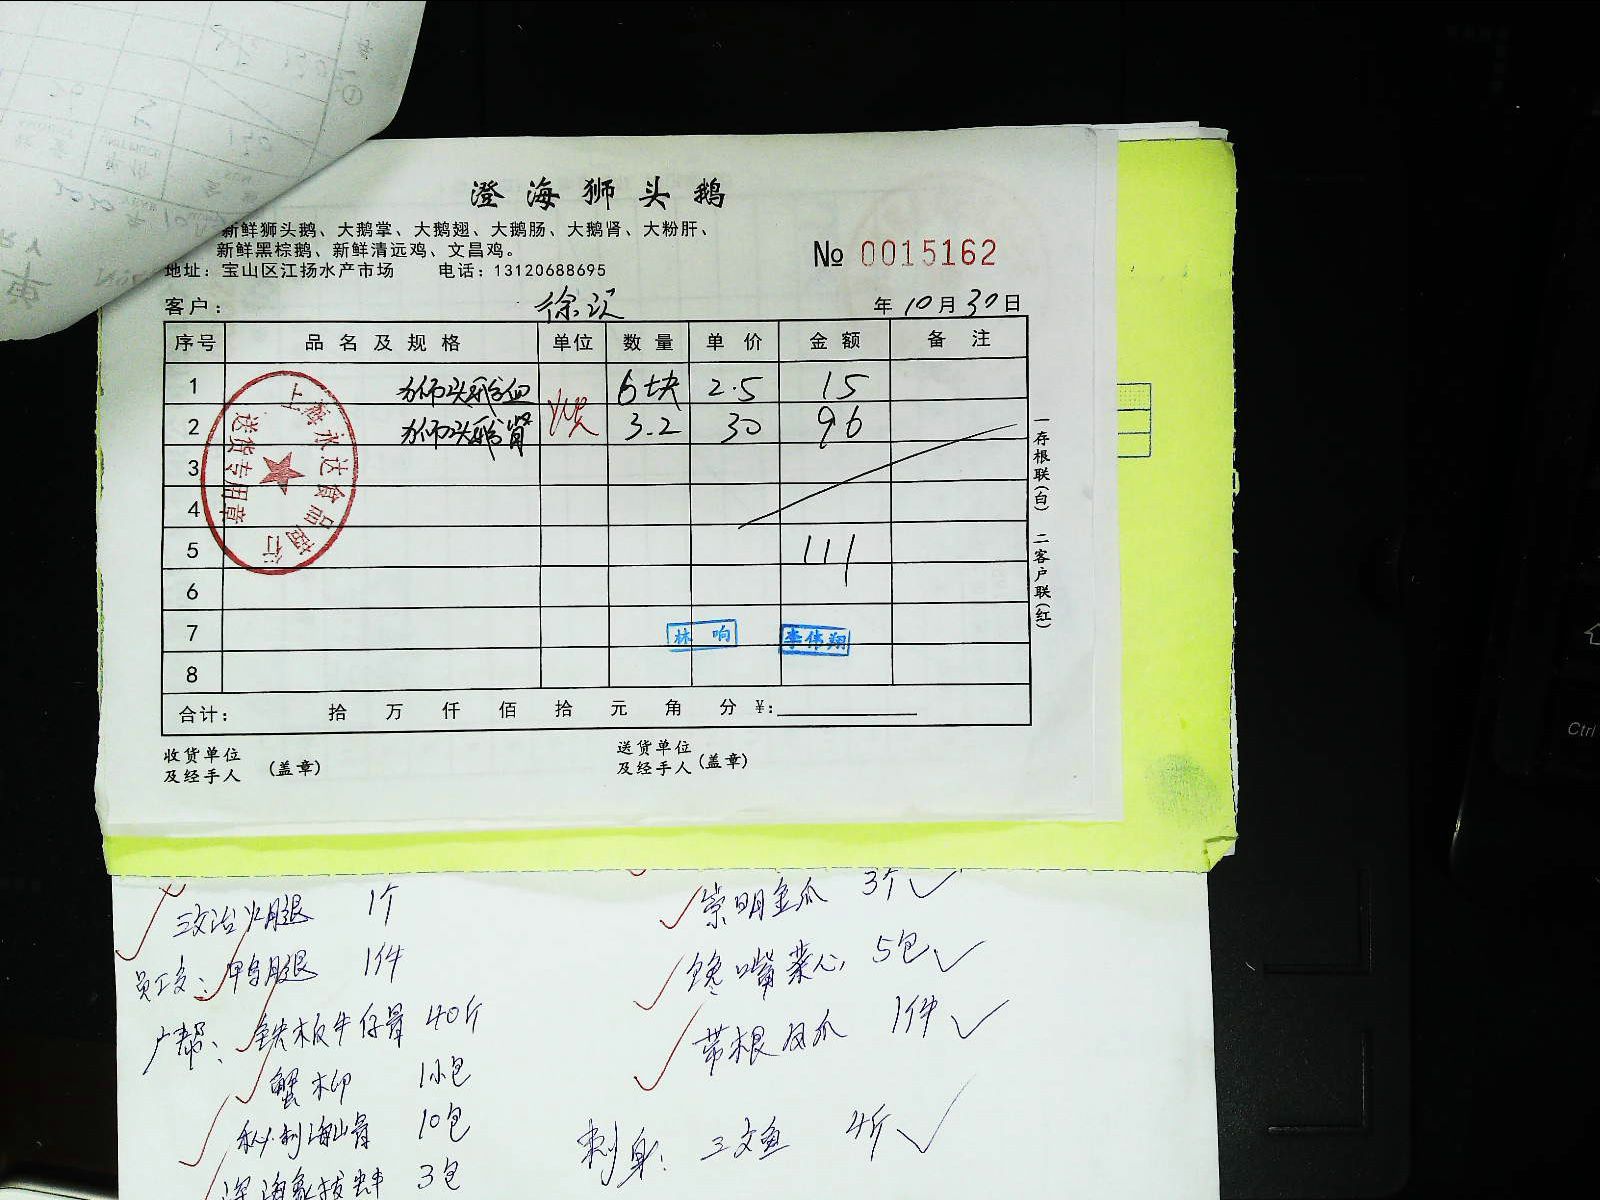 澄海狮头鹅
新鲜狮头鹅、大鹅掌、大鹅翅、大鹅肠、大鹅肾、大粉肝、
新鲜黑棕鹅、新鲜清远鸡、文昌鸡。
地址：宝山区江扬水产市场 电话：13120688695
№ 0015162
客户： 徐汉 年10月30日
序号 品名及规格 单位 数量 单价 金额 备注
1 狮头鹅血 6块 2.5 15
2 狮头鹅肾 3.2 30 96
3
4
5 111
6
7 林响 李伟翔
8
合计： 拾 万 仟 佰 拾 元 角 分 ¥:
收货单位
及经手人 (盖章)
送货单位
及经手人 (盖章)
一存根联(白) 二客户联(红)
上海永达食品商行
送货专用章
三文治火腿 1个
员工餐：鸭腿 1件
广帮：铁板牛仔骨 40斤
蟹柳 1小包
秘制海山骨 10包
深海象拔蚌 3包
崇明金瓜 3个
馋嘴菜心 5包
带根凤爪 1件
刺身：三文鱼 4斤
Ctrl